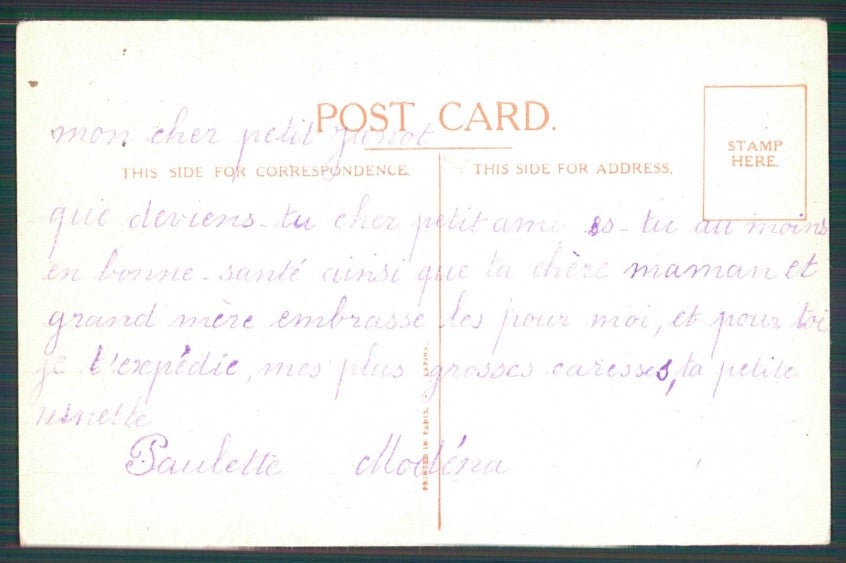 POST CARD.
mon cher petit
THIS SIDE FOR CORRESPONDENCE.
THIS SIDE FOR ADDRESS.
STAMP
HERE.
que deviens-tu cher petit ami es-tu au moins
en bonne-santé ainsi que ta chère maman et
grand mère embrasse les pour moi, et pour toi
je t'expédie, mes plus grosses caresses, ta petite
Paulette Modéna
PRINTED IN PARIS.